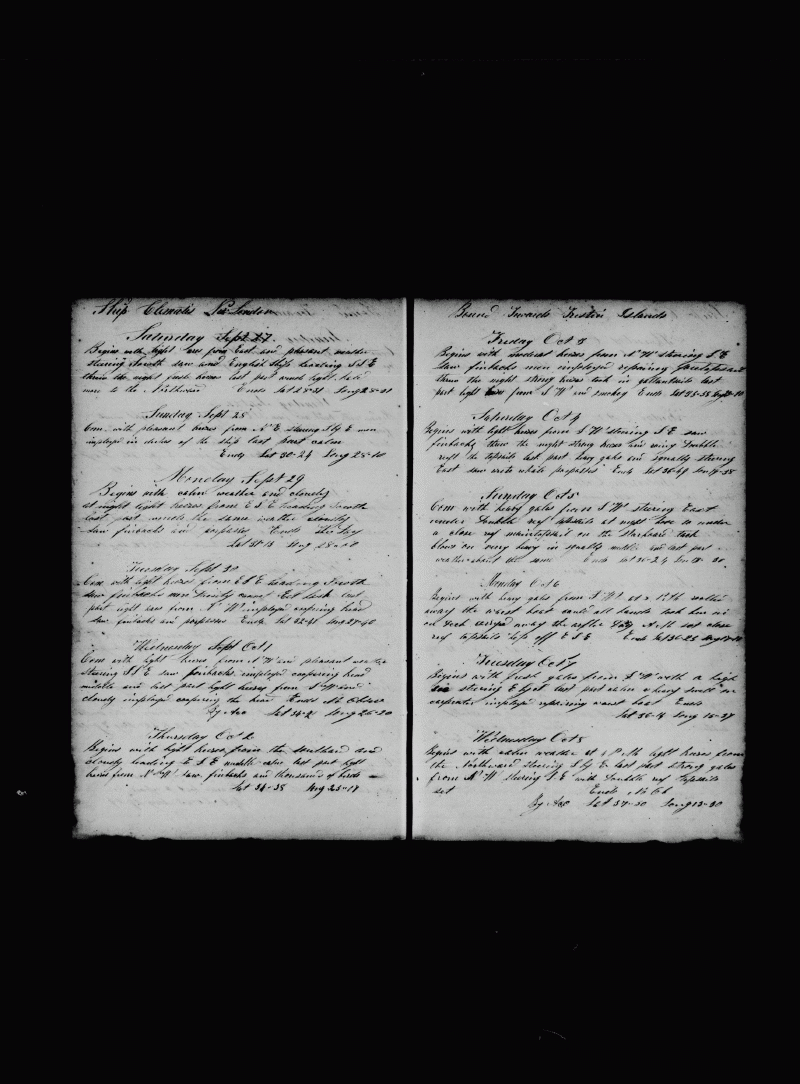 Ship Clematis New London
Saturday Sept 27
Begins with light airs from East and pleasant weather
steering South saw and English Ship heading S S E
threw the night fresh breeses last part winds light hall
more to the Northward Ends Lat 28-31 Long 28-01
Sunday Sept 28
Com with pleasant breses from N E stearing S by E men
imployed in duties of the ship last part calm
Ends Lat 30-24 Long 28-10
Monday Sept 29
Begins with calm weather and cloudy
at night light breses from E S E heading South
last part winds the same weather cloudy
saw finbacks and porpoises Ends this Day
Lat 31-13 Long 28-00
Tuesday Sept 30
Com with light breses from E S E heading South
saw finbacks more variety round East last
part light airs from N W imployed reparing head
saw finbacks and porpoises Ends Lat 32-41 Long 27-40
Wednesday Sept Oct 1
Com with light breses from N W and pleasant weather
stearing S S E saw finbacks imployed reparing head
middle and last part light breses from N W and
cloudy imployed reparing the head Ends No Obser
By Acc Lat 34-2 Long 26-20
Thursday Oct 2
Begins with light breses from the southard and
cloudy heading E S E middle calm last part light
breses from N N W saw finbacks and thousands of birds
Lat 34-38 Long 25-17
Bound Towards Tristin Islands
Friday Oct 3
Begins with moderate breses from N W stearing S E
saw finbacks men imployed repairing foretopsail
threw the night strong breses took in gallantsails last
part light airs from S W and smokey Ends Lat 35-58 Long 20-10
Saturday Oct 4
Begins with light breses from S W stearing S E saw
finbacks threw the night strong breses and using double
reeft the topsails last part heavy gales and squally steering
East saw white porpoises Ends Lat 36-47 Long 19-38
Sunday Oct 5
Com with heavy gales from S W stearing East
under double reef topsails at night hove to under
a close reef maintopsail on the starboard tack
blows on very heavy in squalls middle and last part
weather about the same Ends Lat 36-24 Lon 18-30
Monday Oct 6
Begins with heavy gales from S W at 2 PM
away the waist boat called all hands took her in
carried away the A M set close
reef topsails kept off E S E Ends Lat 36-25
Tuesday Oct 7
Begins with fresh gales from S W with a high
sea stearing E by S last part calm a heavy swell on
carpenter imployed repairing waist boat Ends
Lat 36-18 Long 15-37
Wednesday Oct 8
Begins with calm weather at 4 PM light breses from
the Northward stearing S by E last part strong gales
from N W stearing S E with double reef topsails
set Ends No Ob
By Acc Lat 37-30 Long 13-30